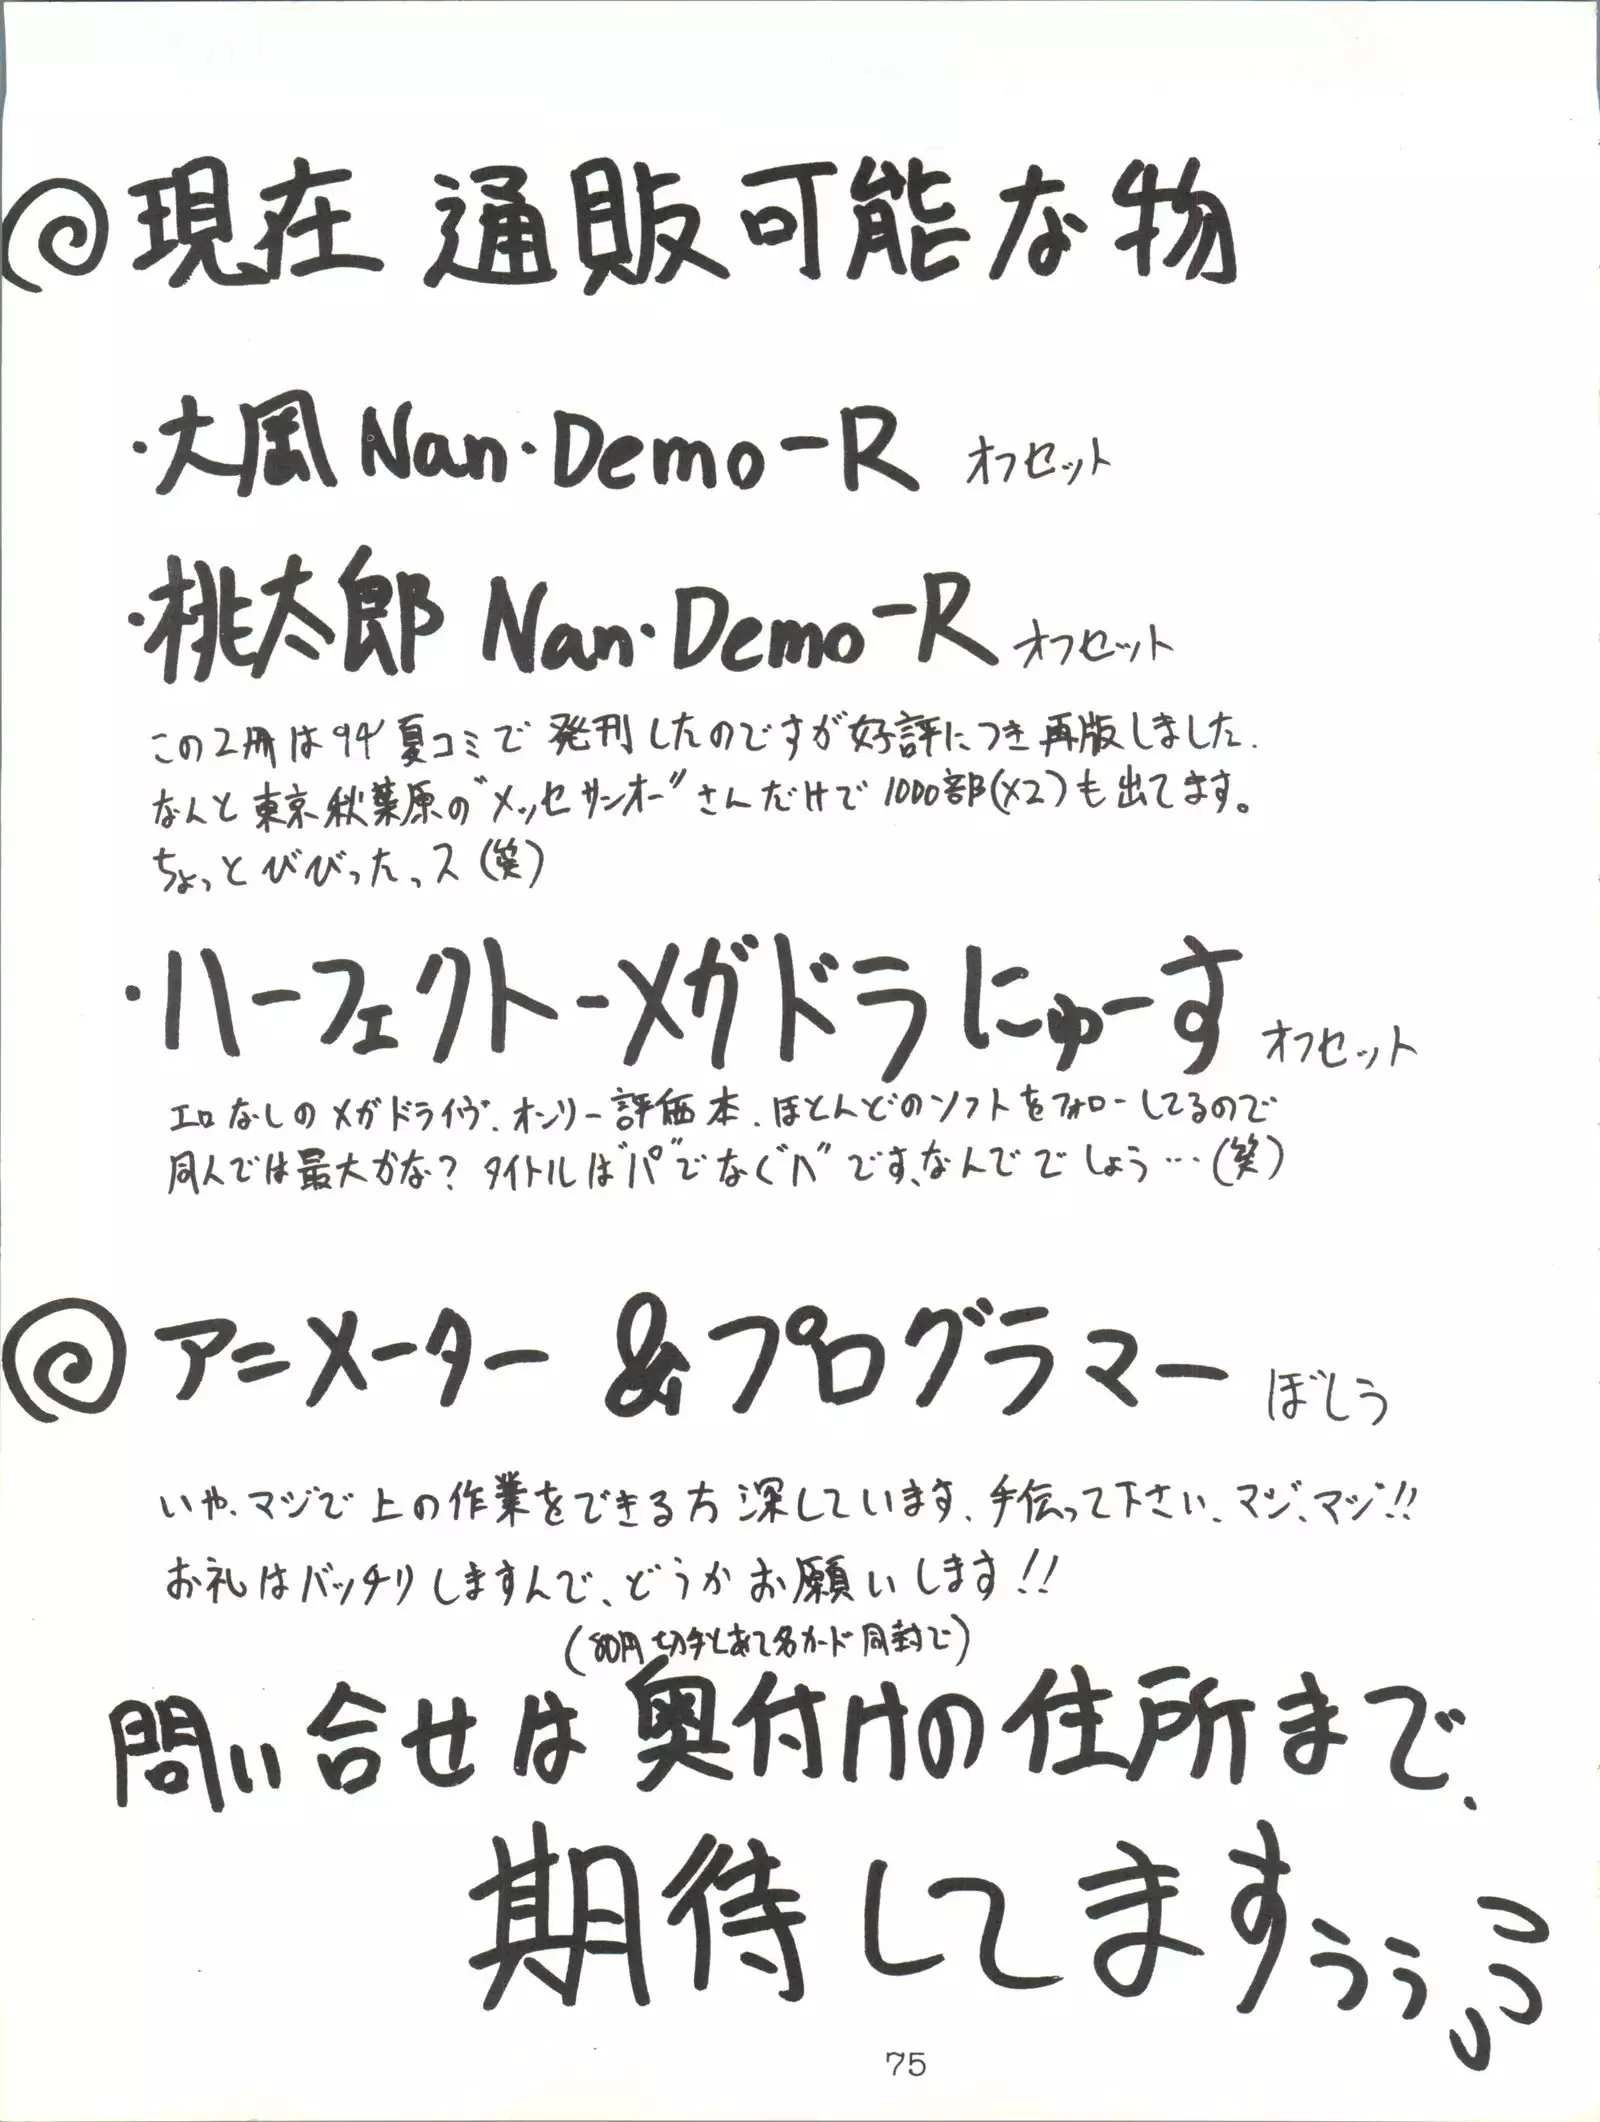 現在 通販可能な物
・大凬 Nan・Demo-R オフセット
・桃太郎 Nan・Demo-R オフセット
この2冊は94'夏コミで発刊したのですが好評につき再版しました.
なんと東京秋葉原の"メッセサンオー"さんだけで1000部(×2)も出てます。
ちょっとびびったっス(笑)
・ハーフェクトーメガドラにゅーす オフセット
エロなしのメガドライヴ、オンリー評価本、ほとんどのソフトをフォローしてるので
同人では最大かな? タイトルは"パ"でなく"ハ"です、なんででしょう…(笑)
アニメーター&プログラマー ぼしう
いや、マジで上の作業をできる方深しています、手伝って下さい、マジ、マジ!!
お礼はバッチリしますんで、どうかお願いします!!
(80円切手とあて名カード同封で)
問い合せは奥付けの住所まで.
期待してますぅぅ
75